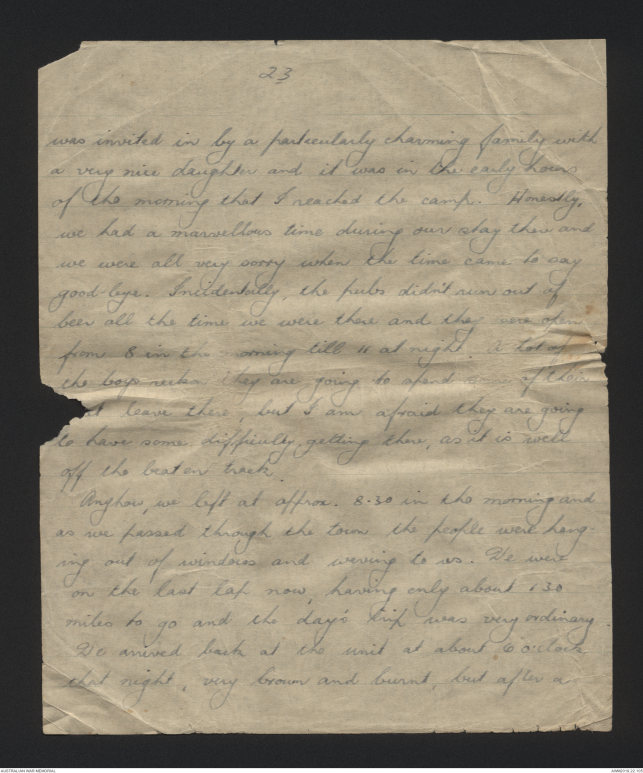 23
was invited in by a particularly charming family with
a very nice daughter and it was in the early hours
of the morning that I reached the camp. Honestly,
we had a marvellous time during our stay there and
we were all very sorry when the time came to say
good-bye. Incidentally, the pubs didn't run out of
beer all the time we were there and they were open
from 8 in the morning till 11 at night. A lot of
the boys reckon they are going to spend some of their
leave there, but I am afraid they are going
to have some difficulty getting there, as it is well
off the beaten track.
Anyhow, we left at approx. 8.30 in the morning and
as we passed through the town the people were hang-
ing out of windows and waving to us. We were
on the last lap now, having only about 130
miles to go and the day's trip was very ordinary.
We arrived back at the unit at about 6 o'clock
that night, very brown and burnt, but after a
AUSTRALIAN WAR MEMORIAL